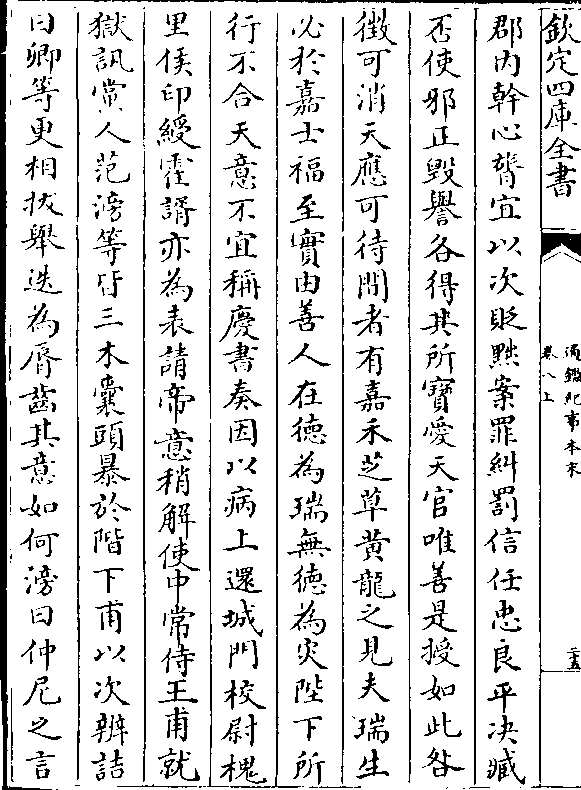 欽定四庫全書
通鑑紀事本末
卷八上
二十五
郡内幹心膂宜以次貶黜案罪糾罰信任忠良平决臧
否使邪正毁譽各得其所寶愛天官唯善是授如此咎
徴可消天應可待間者有嘉禾芝草黄龍之見夫瑞生
必於嘉士福至實由善人在徳為瑞無徳為災陛下所
行不合天意不宜稱慶書奏因以病上還城門校尉槐
里侯印綬霍諝亦為表請帝意稍解使中常侍王甫就
獄訊黨人范滂等皆三木囊頭暴於階下甫以次辨詰
曰卿等更相拔舉迭為脣齒其意如何滂曰仲尼之言